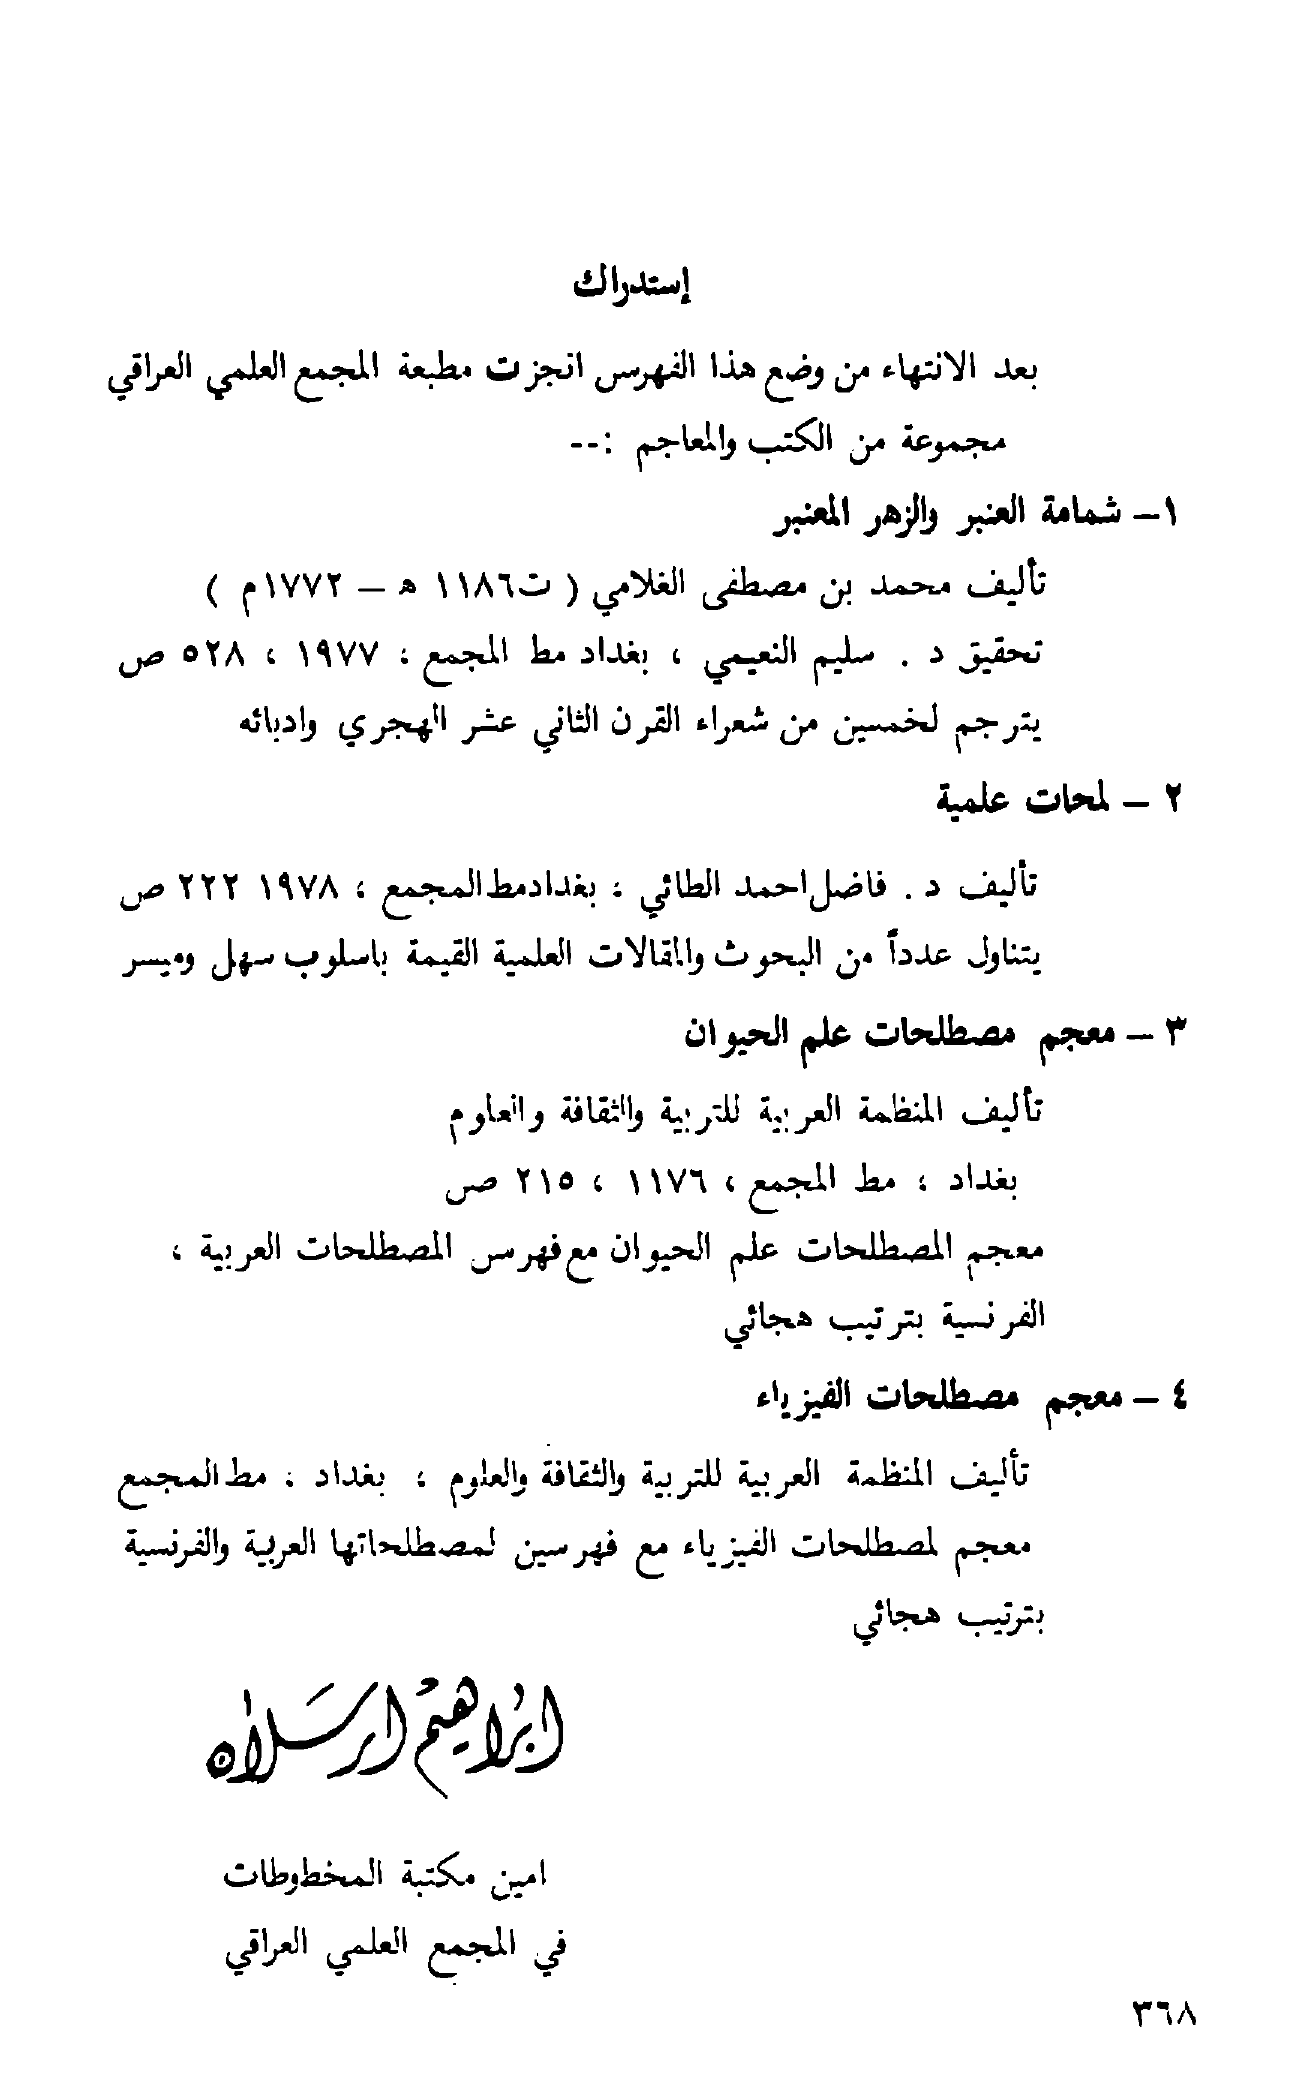 إستدراك
بعد الانتهاء من وضع هذا الفهرس انجزت مطبعة المجمع العلمي العراقي
مجموعة من الكتب والمعاجم :--
١- شمامة العنبر والزهر المعنبر
تأليف محمد بن مصطفى الغلامي ( ت١١٨٦ هـ - ١٧٧٢م )
تحقيق د . سليم النعيمي ، بغداد مط المجمع ، ١٩٧٧ ، ٥٢٨ ص
يترجم لخمسين من شعراء القرن الثاني عشر الهجري وادبائه
٢ - لمحات علمية
تأليف د . فاضل احمد الطائي ، بغداد مط المجمع ، ١٩٧٨ ٢٢٢ ص
يتناول عدداً من البحوث والمقالات العلمية القيمة باسلوب سهل وميسر
٣ - معجم مصطلحات علم الحيوان
تأليف المنظمة العربية للتربية والثقافة والعلوم
بغداد ، مط المجمع ، ١١٧٦ ، ٢١٥ ص
معجم المصطلحات علم الحيوان مع فهرس المصطلحات العربية ،
الفرنسية بترتيب هجائي
٤ - معجم مصطلحات الفيزياء
تأليف المنظمة العربية للتربية والثقافة والعلوم ، بغداد . مط المجمع
معجم لمصطلحات الفيزياء مع فهرسين لمصطلحاتها العربية والفرنسية
بترتيب هجائي
ابراهيم ارسلان
امين مكتبة المخطوطات
في المجمع العلمي العراقي
٣٦٨